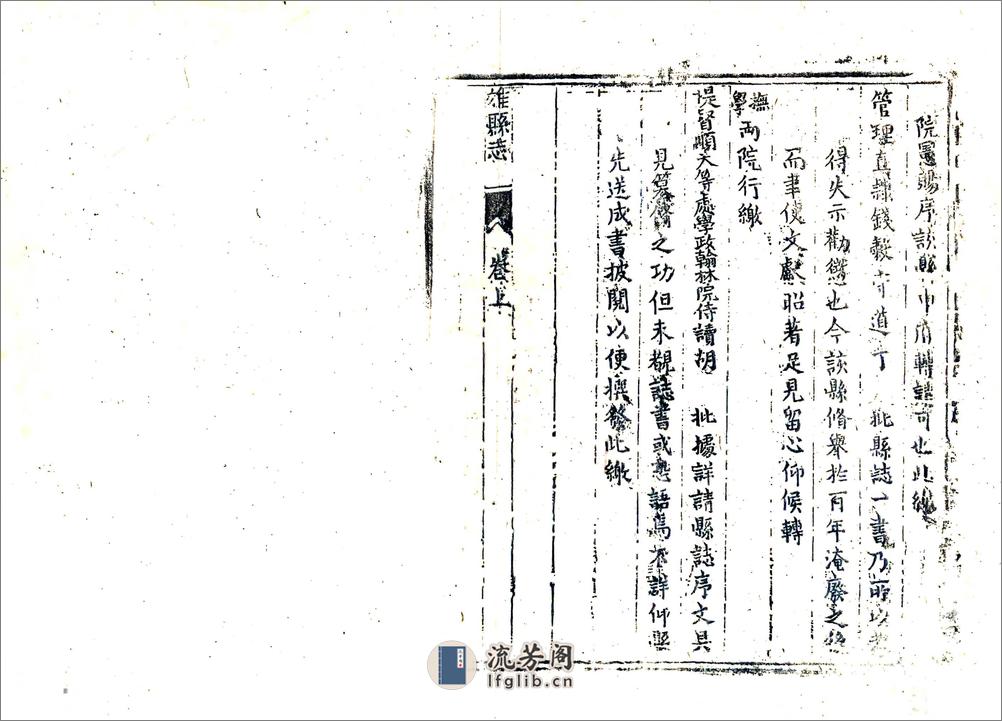 院憲賜序該縣申府轉請可也此繳
管理直隸錢穀守道丁　批縣誌一書乃所以考
得失示勸懲也今該縣脩舉於百年淹廢之後
而聿使文獻昭著足見留心仰候轉
撫學兩院行繳
提督順天等處學政翰林院侍讀胡　批據詳請縣誌序文具
見纂修之功但未覩誌書或恐語焉不詳仰縣
先送成書披閱以便撰發此繳
雄縣志　卷上
流芳阁
lfglib.cn